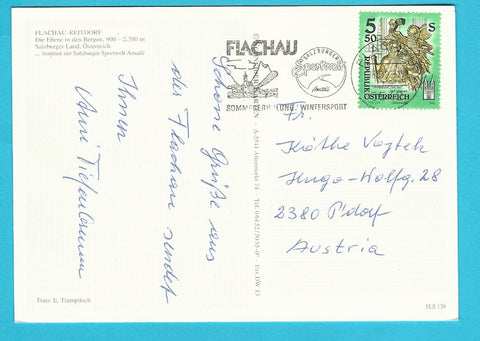 FLACHAU-REITDORF
Die Ebene in den Bergen, 900 – 2.700 m
Salzburger Land, Österreich
... inmitten der Salzburger Sportwelt Amadé
Schöne Grüße aus
der Flachau sendet
Ihnen
Anni Tiefenbrunn
Foto: E. Trampitsch
A-5541 Altenmarkt 74 · Tel. 06452/5035-0* · Fax DW 13
FLACHAU
SALZBURGER
Sportwelt
Amadé
SOMMER-ERHOLUNG WINTERSPORT
5 50 S
REPUBLIK
ÖSTERREICH
Fr.
Käthe Vojtek
Hugo-Wolfg. 28
2380 P'dorf
Austria
FLS 139